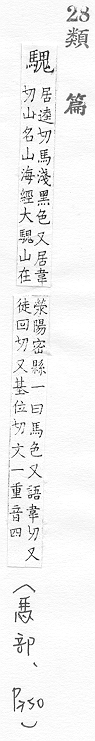 28
類
篇
騩 居逵切馬淺黑色又居韋
切山名山海經大騩山在
滎陽密縣一曰馬色又語韋切又
徒回切又基位切文一重音四
(馬部、P350)